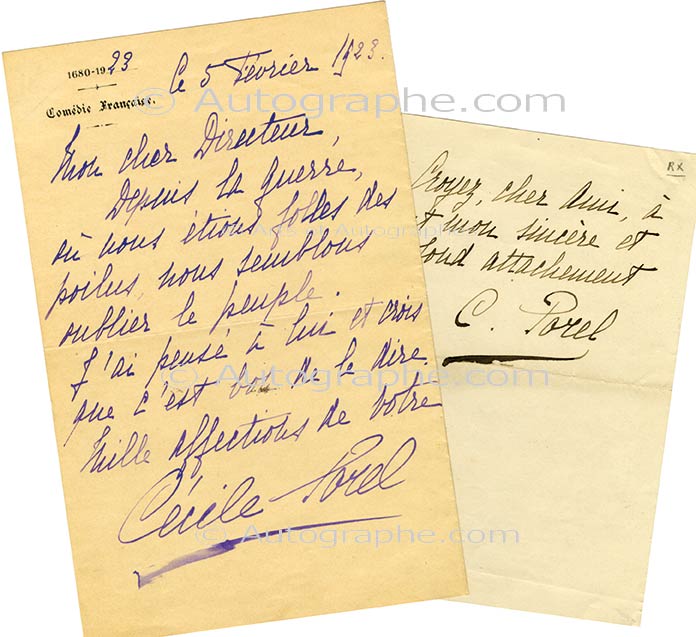 1680-1923
Comédie Française.
le 5 Février 1923.
Mon cher Directeur,
Depuis la guerre,
où nous étions folles des
poilus, nous semblons
oublier le peuple.
J'ai pensé à lui et crois
que c'est de le dire.
Mille affections de votre
Cécile Sorel
RX
Croyez, cher Ami, à
t mon sincère et
fond attachement
C. Sorel
© Autographe.com
Arts et Autographes
© Autographe.com
© Autographe.com